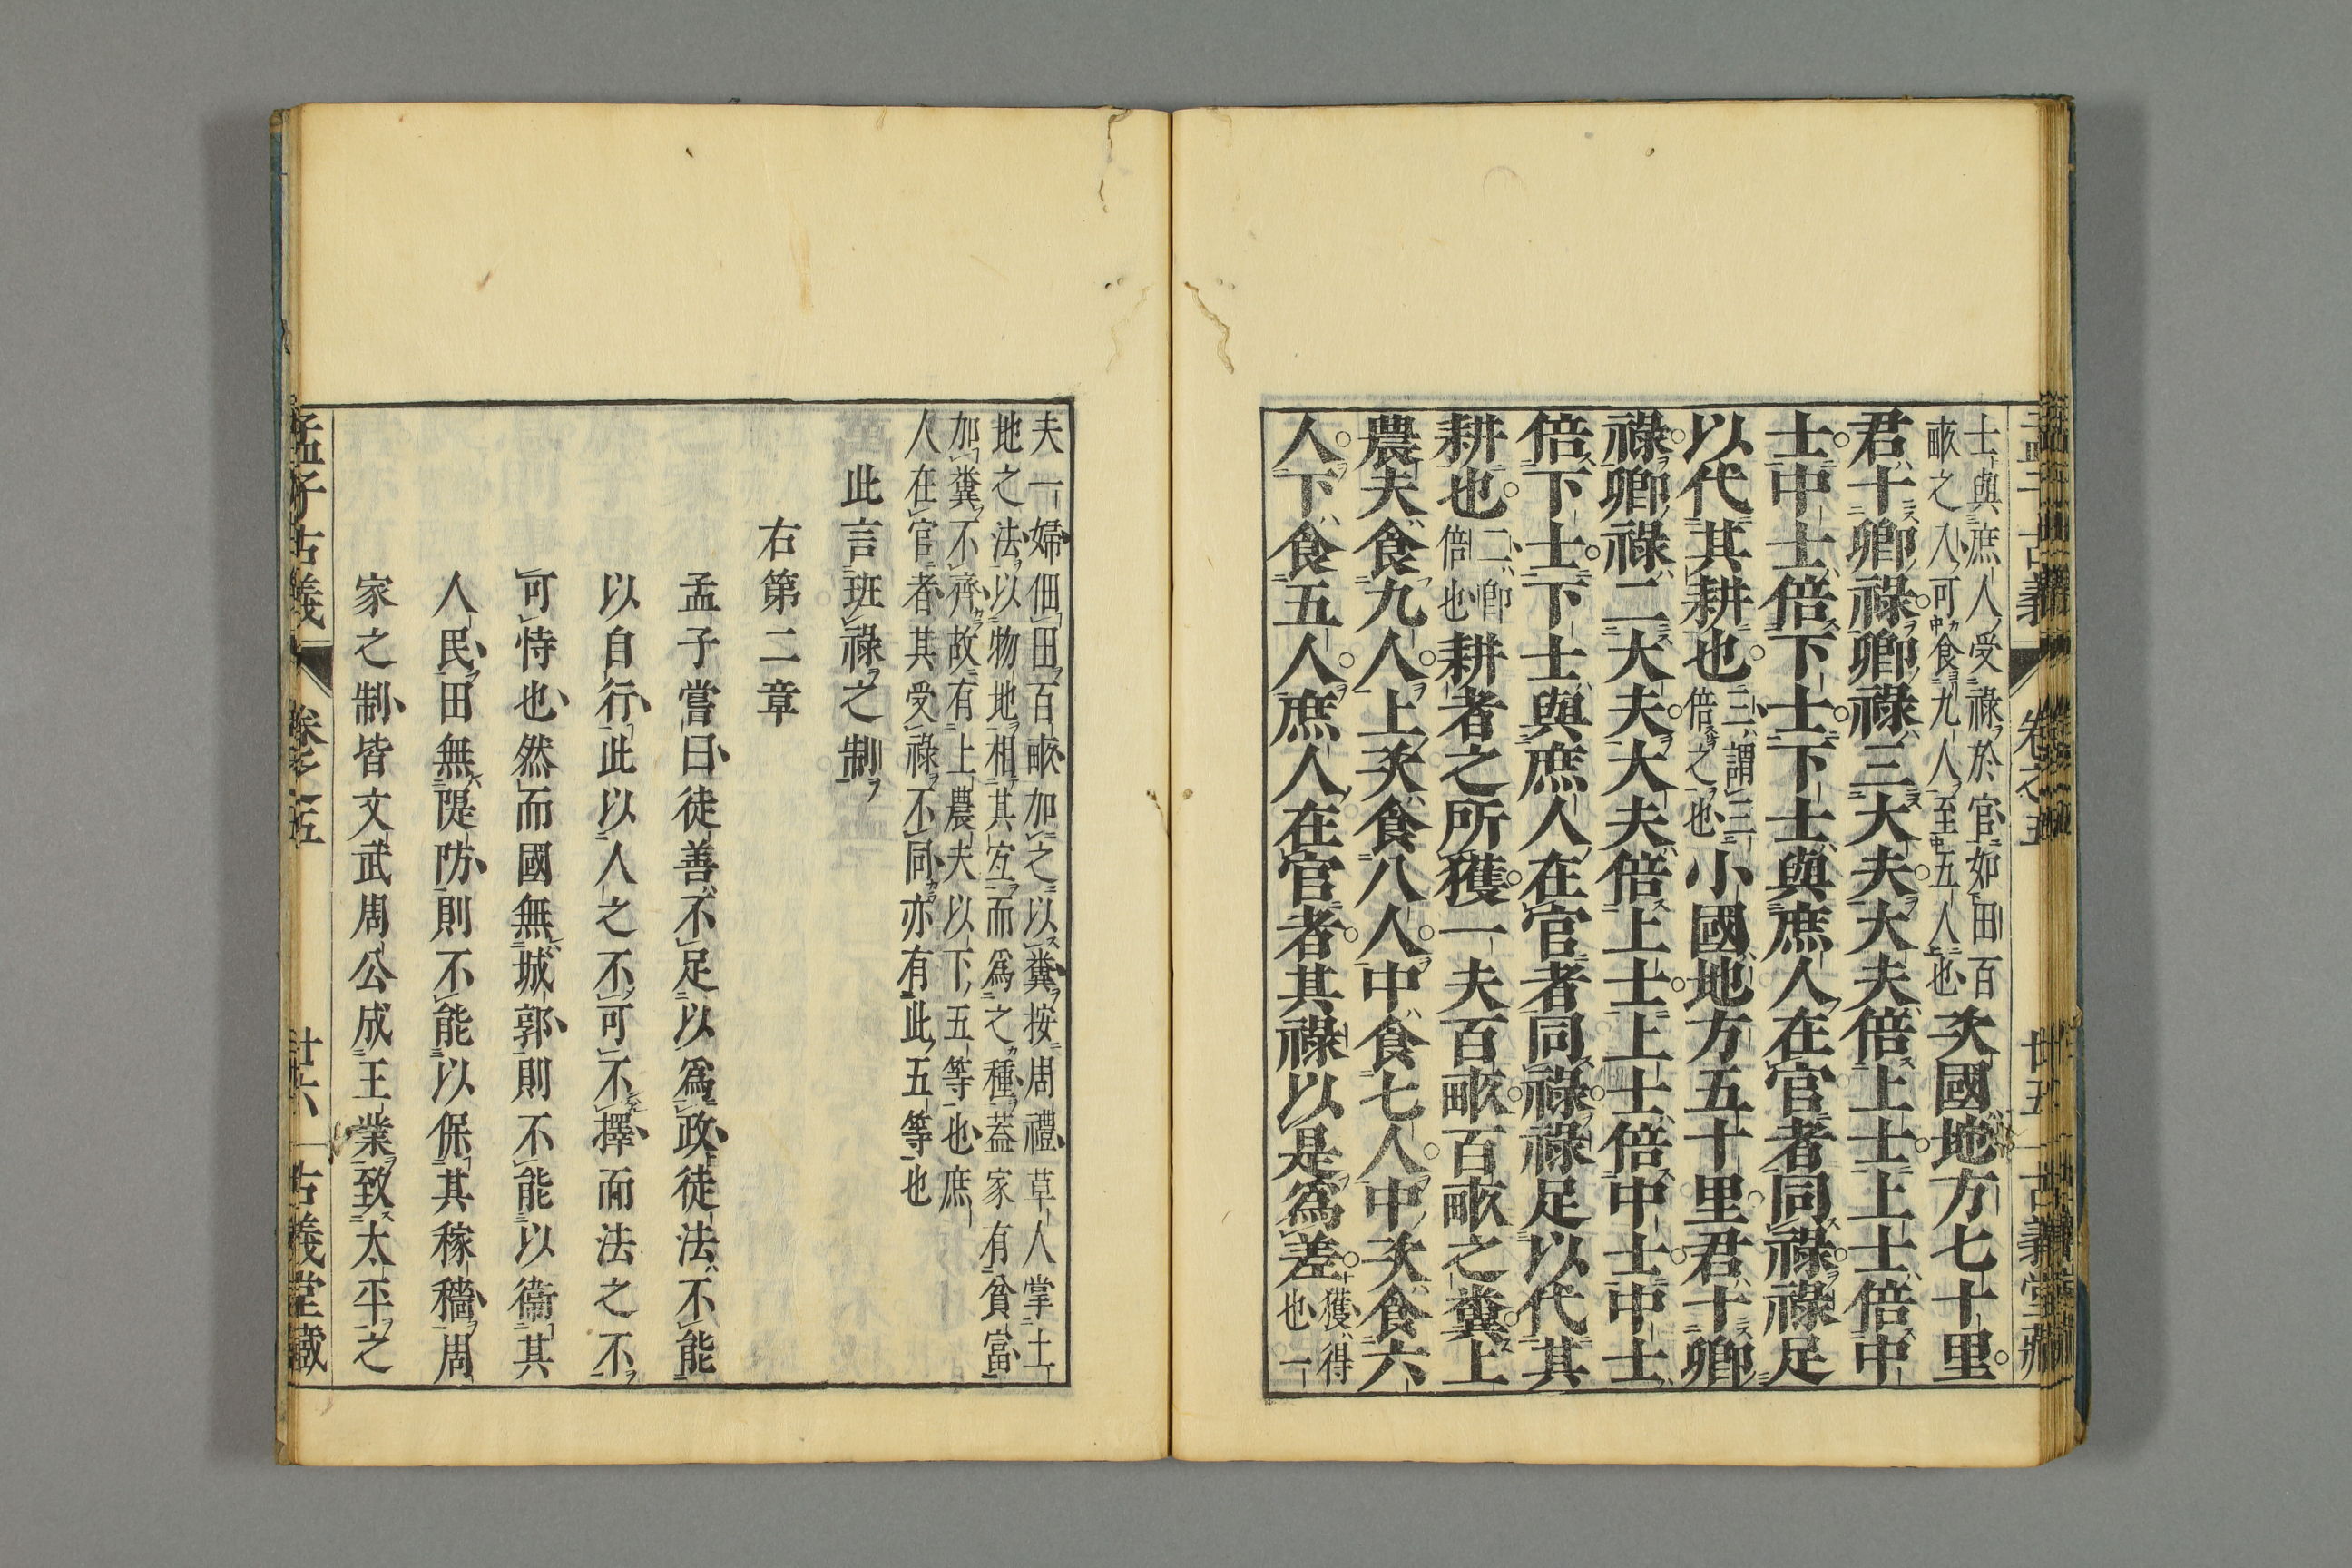 士與庶人受祿於官如田百
畞之入可食九人至五人也
次國地方七十里
君十卿祿卿祿三大夫大夫倍上士上士倍中
士中士倍下士下士與庶人在官者同祿祿足
以代其耕也
三謂三
倍之也
小國地方五十里君十卿
祿卿祿二大夫大夫倍上士上士倍中士中士
倍下士下士與庶人在官者同祿祿足以代其
耕也
二卽
倍也
耕者之所獲一夫百畞百畞之糞上
農夫食九人上次食八人中食七人中次食六
人下食五人庶人在官者其祿以是爲差
獲得
也一
夫一婦佃田百畞加之以糞按周禮草人掌土
地之法以物地相其宜而爲之種蓋家有貧富
加糞不齊故有上農夫以下五等也庶
人在官者其受祿不同亦有此五等也
此言班祿之制
右第二章
孟子嘗曰徒善不足以爲政徒法不能
以自行此以人之不可不擇而法之不
可恃也然而國無城郭則不能以衞其
人民田無隄防則不能以保其稼穡周
家之制皆文武周公成王業致太平之
孟子古義
卷之五
廿六
古義堂藏